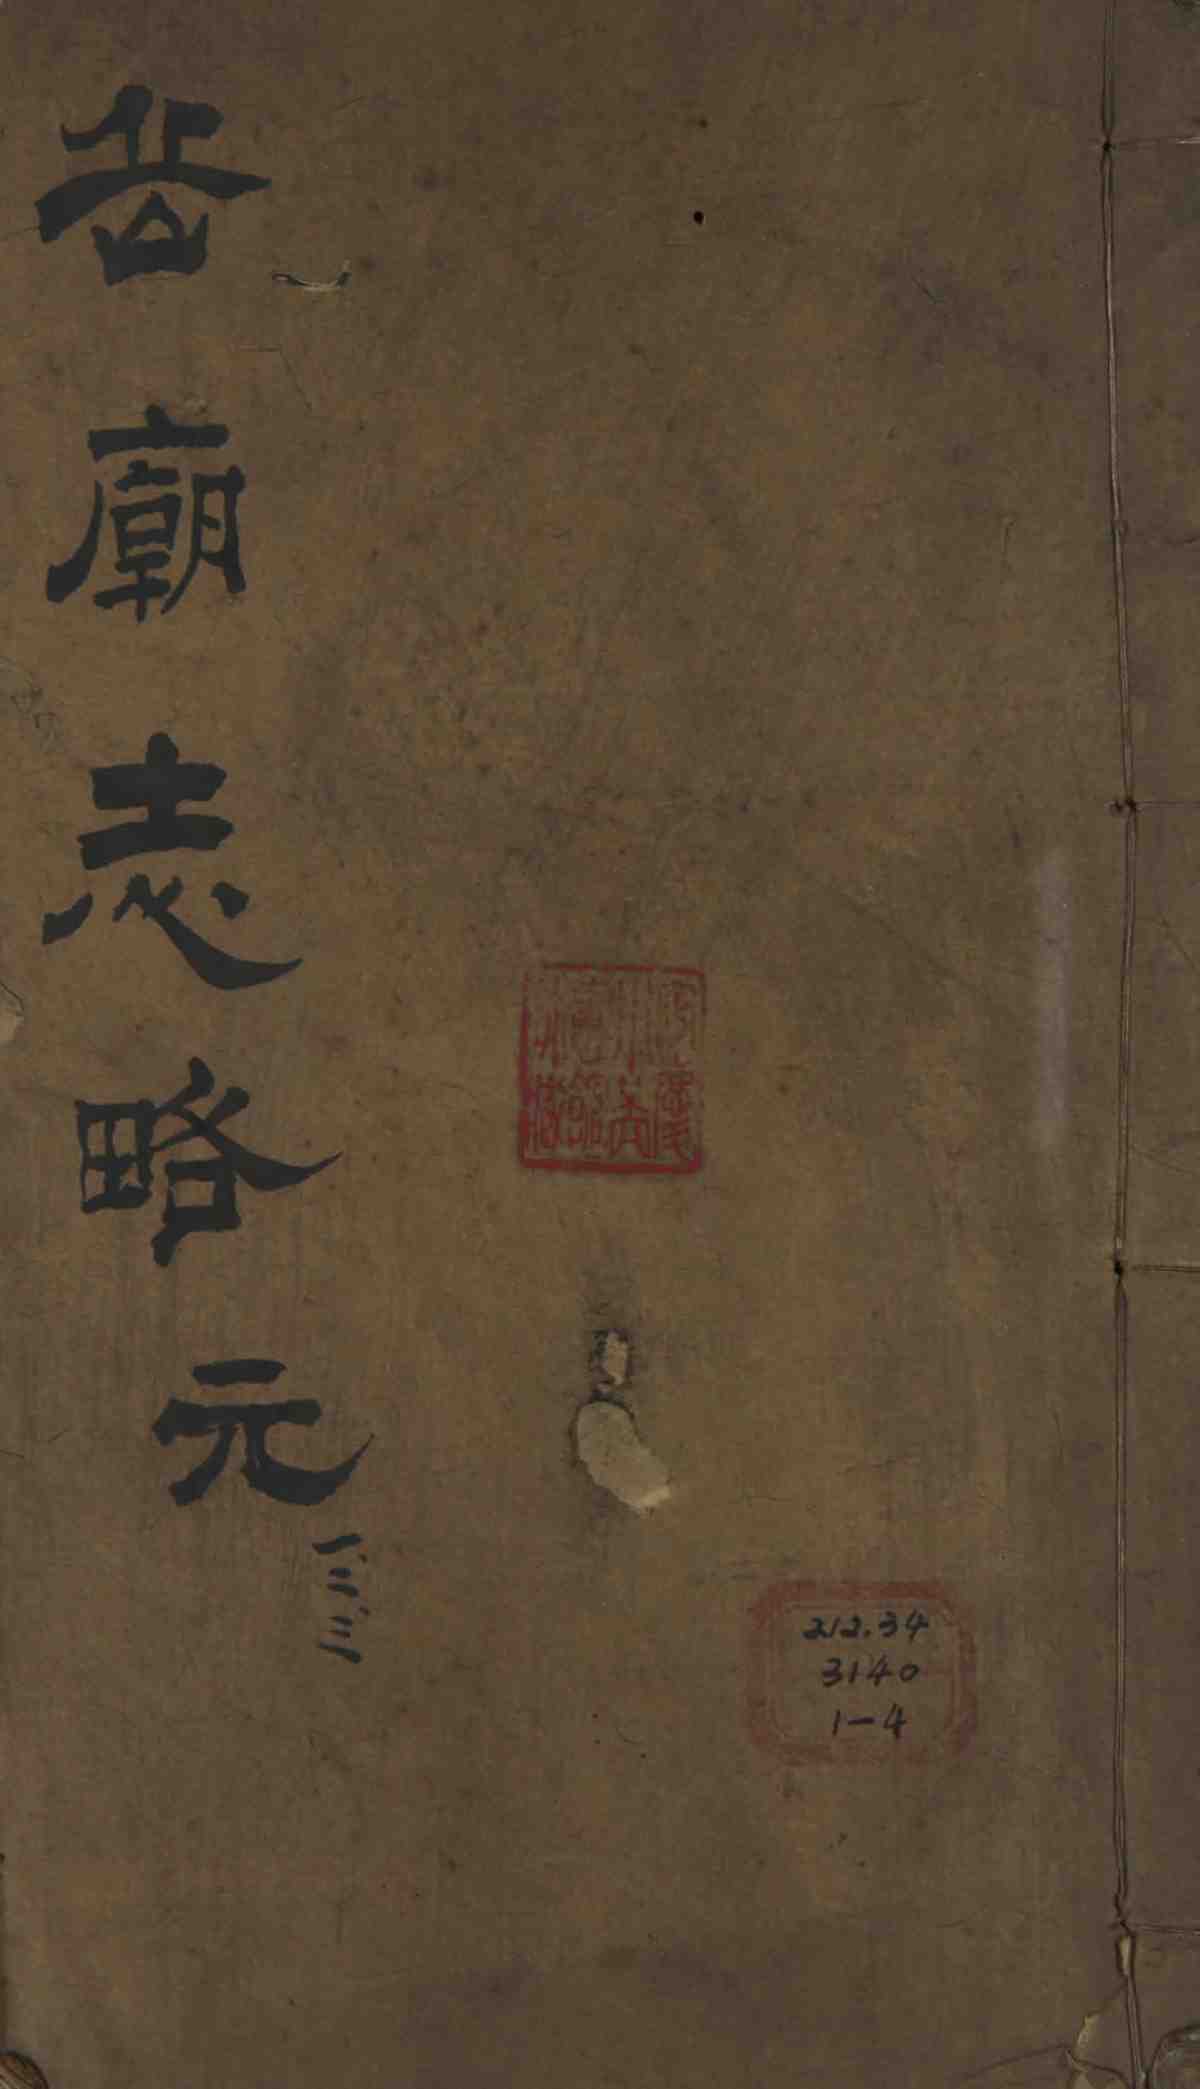 岳廟志略元
一、二、三
212.34
3140
1-4